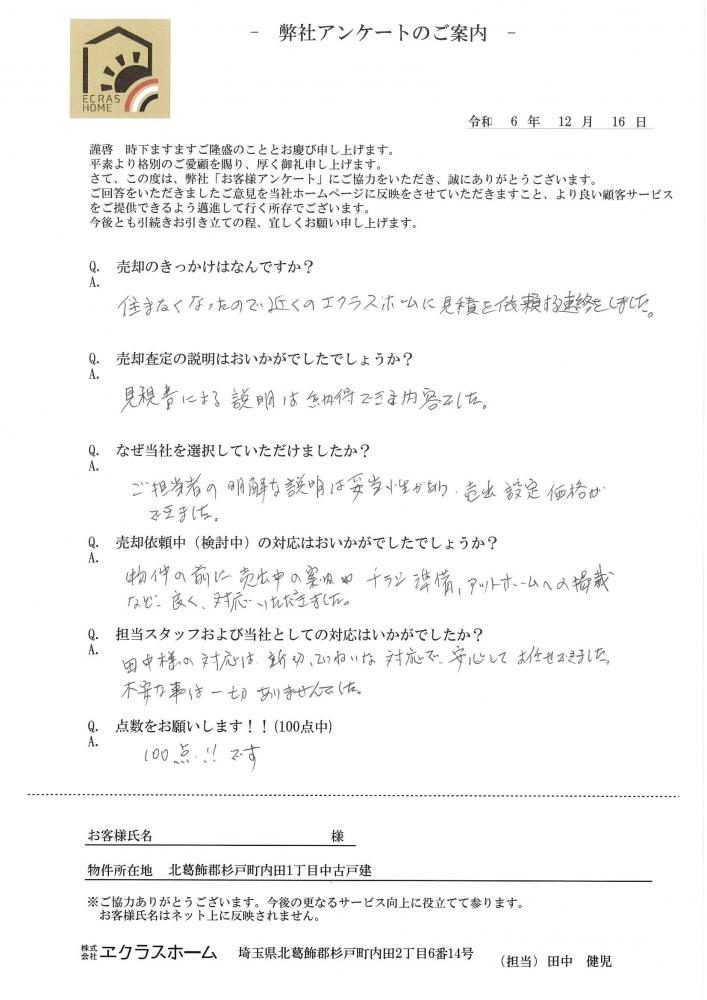 - 弊社アンケートのご案内 -
ECRAS
HOME
令和 6 年 12 月 16 日
謹啓 時下ますますご隆盛のこととお慶び申し上げます。
平素より格別のご愛顧を賜り、厚く御礼申し上げます。
さて、この度は、弊社「お客様アンケート」にご協力をいただき、誠にありがとうございます。
ご回答をいただきましたご意見を当社ホームページに反映をさせていただきますこと、より良い顧客サービス
をご提供できるよう邁進して行く所存でございます。
今後とも引続きお引き立ての程、宜しくお願い申し上げます。
Q. 売却のきっかけはなんですか？
A.
住まなくなったので近くのエクラスホームに見積を依頼する連絡をしました。
Q. 売却査定の説明はおいかがでしたでしょうか？
A.
による説明は納得できる内容でした。
Q. なぜ当社を選択していただけましたか？
A.
ご担当者の明解な説明は妥当性があり、売出設定価格が
できました。
Q. 売却依頼中（検討中）の対応はおいかがでしたでしょうか？
A.
物件の前に売出中の案内やチラシ準備、アットホームへの掲載
など、良く、対応いただきました。
Q. 担当スタッフおよび当社としての対応はいかがでしたか？
A.
田中様の対応は、親切、ていねいな対応で、安心してお任せできました。
不安な事は一切ありませんでした。
Q. 点数をお願いします！！(100点中)
A.
100点!!です
お客様氏名 様
物件所在地 北葛飾郡杉戸町内田1丁目中古戸建
※ご協力ありがとうございます。今後の更なるサービス向上に役立てて参ります。
お客様氏名はネット上に反映されません。
株式会社 ヱクラスホーム 埼玉県北葛飾郡杉戸町内田2丁目6番14号 （担当）田中 健児